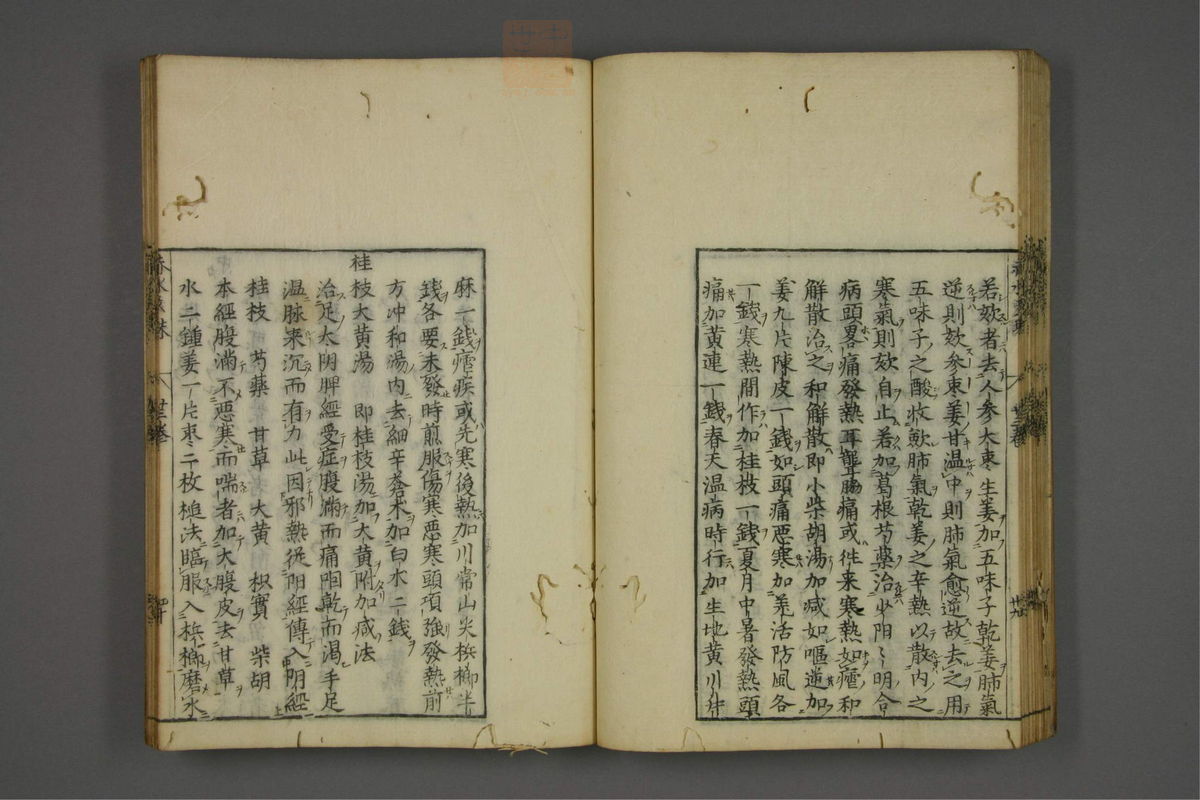 若欬者去人參大棗生姜加五味子乾姜肺氣
逆則欬參棗姜甘温中則肺氣愈逆故去之用
五味子之酸收歛肺氣乾姜之辛熱以散内之
寒氣則欬自止若加葛根芍藥治少阳〻明合
病頭畧痛發熱耳聾脇痛或徃来寒熱如瘧和
解散治之和解散即小柴胡湯加减如嘔逆加
姜九片陳皮一錢如頭痛惡寒加羌活防風各
一錢寒熱間作加桂枝一錢夏月中暑發熱頭
痛加黄連一錢春天温病時行加生地黄川
麻一錢瘧疾或先寒後熱加川常山尖梹榔半
錢各要未發時煎服傷寒惡寒頭項強發熱前
方冲和湯内去細辛蒼术加白术二錢
桂枝大黄湯　即桂枝湯加大黄附加减法
治足太阴脾經受症腹滿而痛咽乾而渴手足
温脉来沉而有力此因邪熱從阳經傳入阴經
桂枝　芍藥　甘草　大黄　枳實　柴胡
本經腹滿不惡寒而喘者加大腹皮去甘草
水二鍾姜一片棗二枚槌法臨服入梹榔磨水